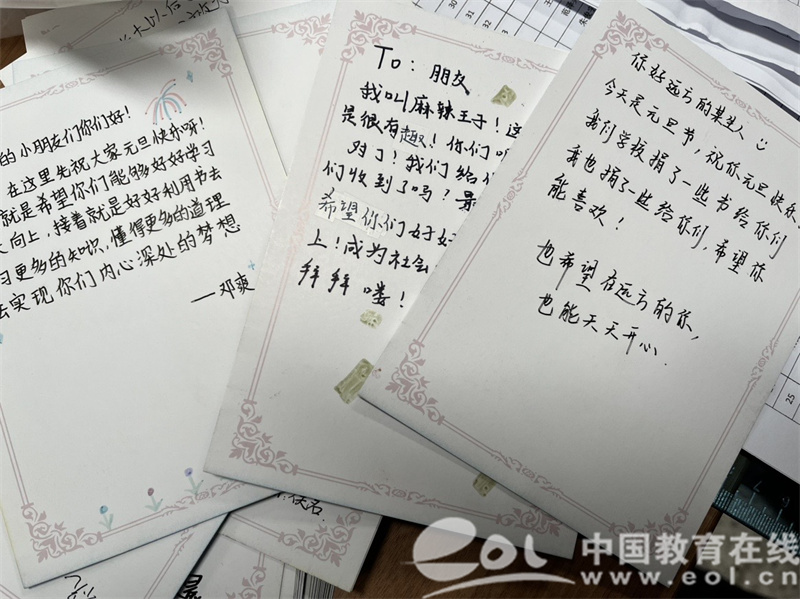 的小朋友们你们好!
在这里先祝大家元旦快乐呀!
就是希望你们能够好好学习
向上,接着就是好好利用书去
习更多的知识,懂得更多的道理
去实现你们内心深处的梦想
——邓爽
To:朋友
我叫麻辣王子!这
是很有趣!你们
对了!我们给你
们收到了吗?
希望你们好好
上!成为社会
拜拜喽!
你好远方的某某人
今天是元旦节,祝你元旦快乐
我们学校捐了一些书给你们
我也捐了一些给你们,希望你
能喜欢!
也希望在远方的你,
也能天天开心.
25
eol 中国教育在线
www.eol.cn